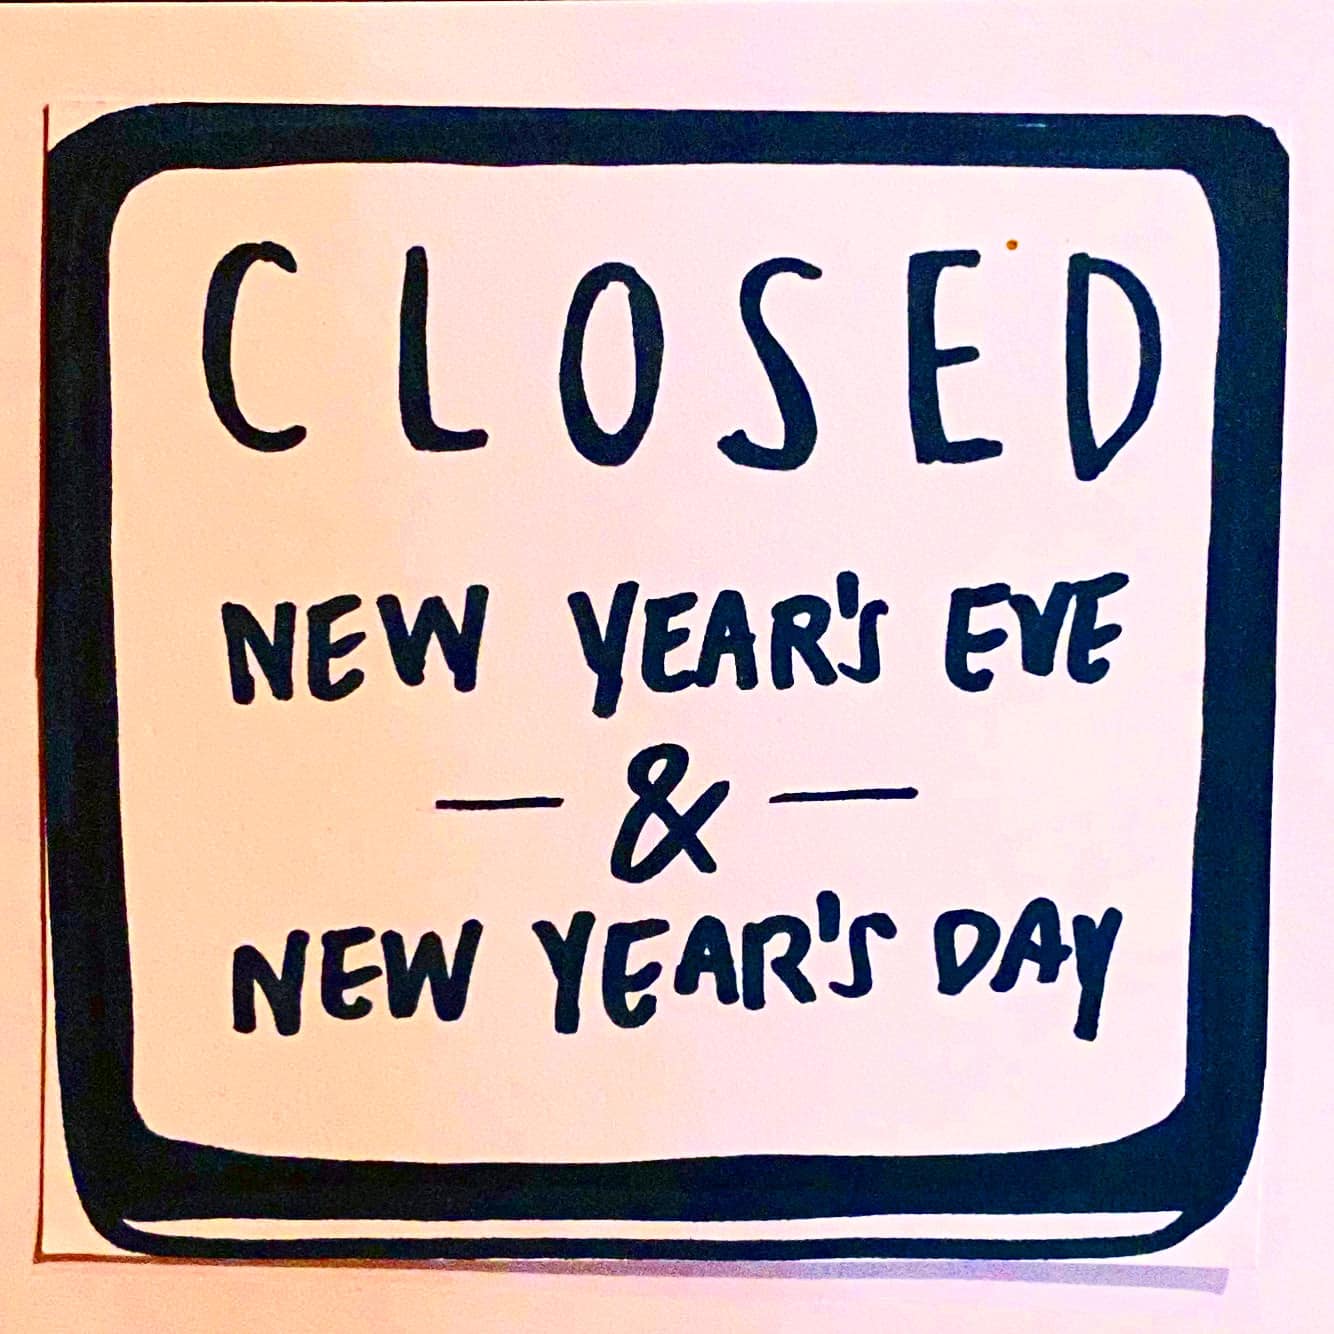 CLOSED
NEW YEAR'S EVE
— & —
NEW YEAR'S DAY